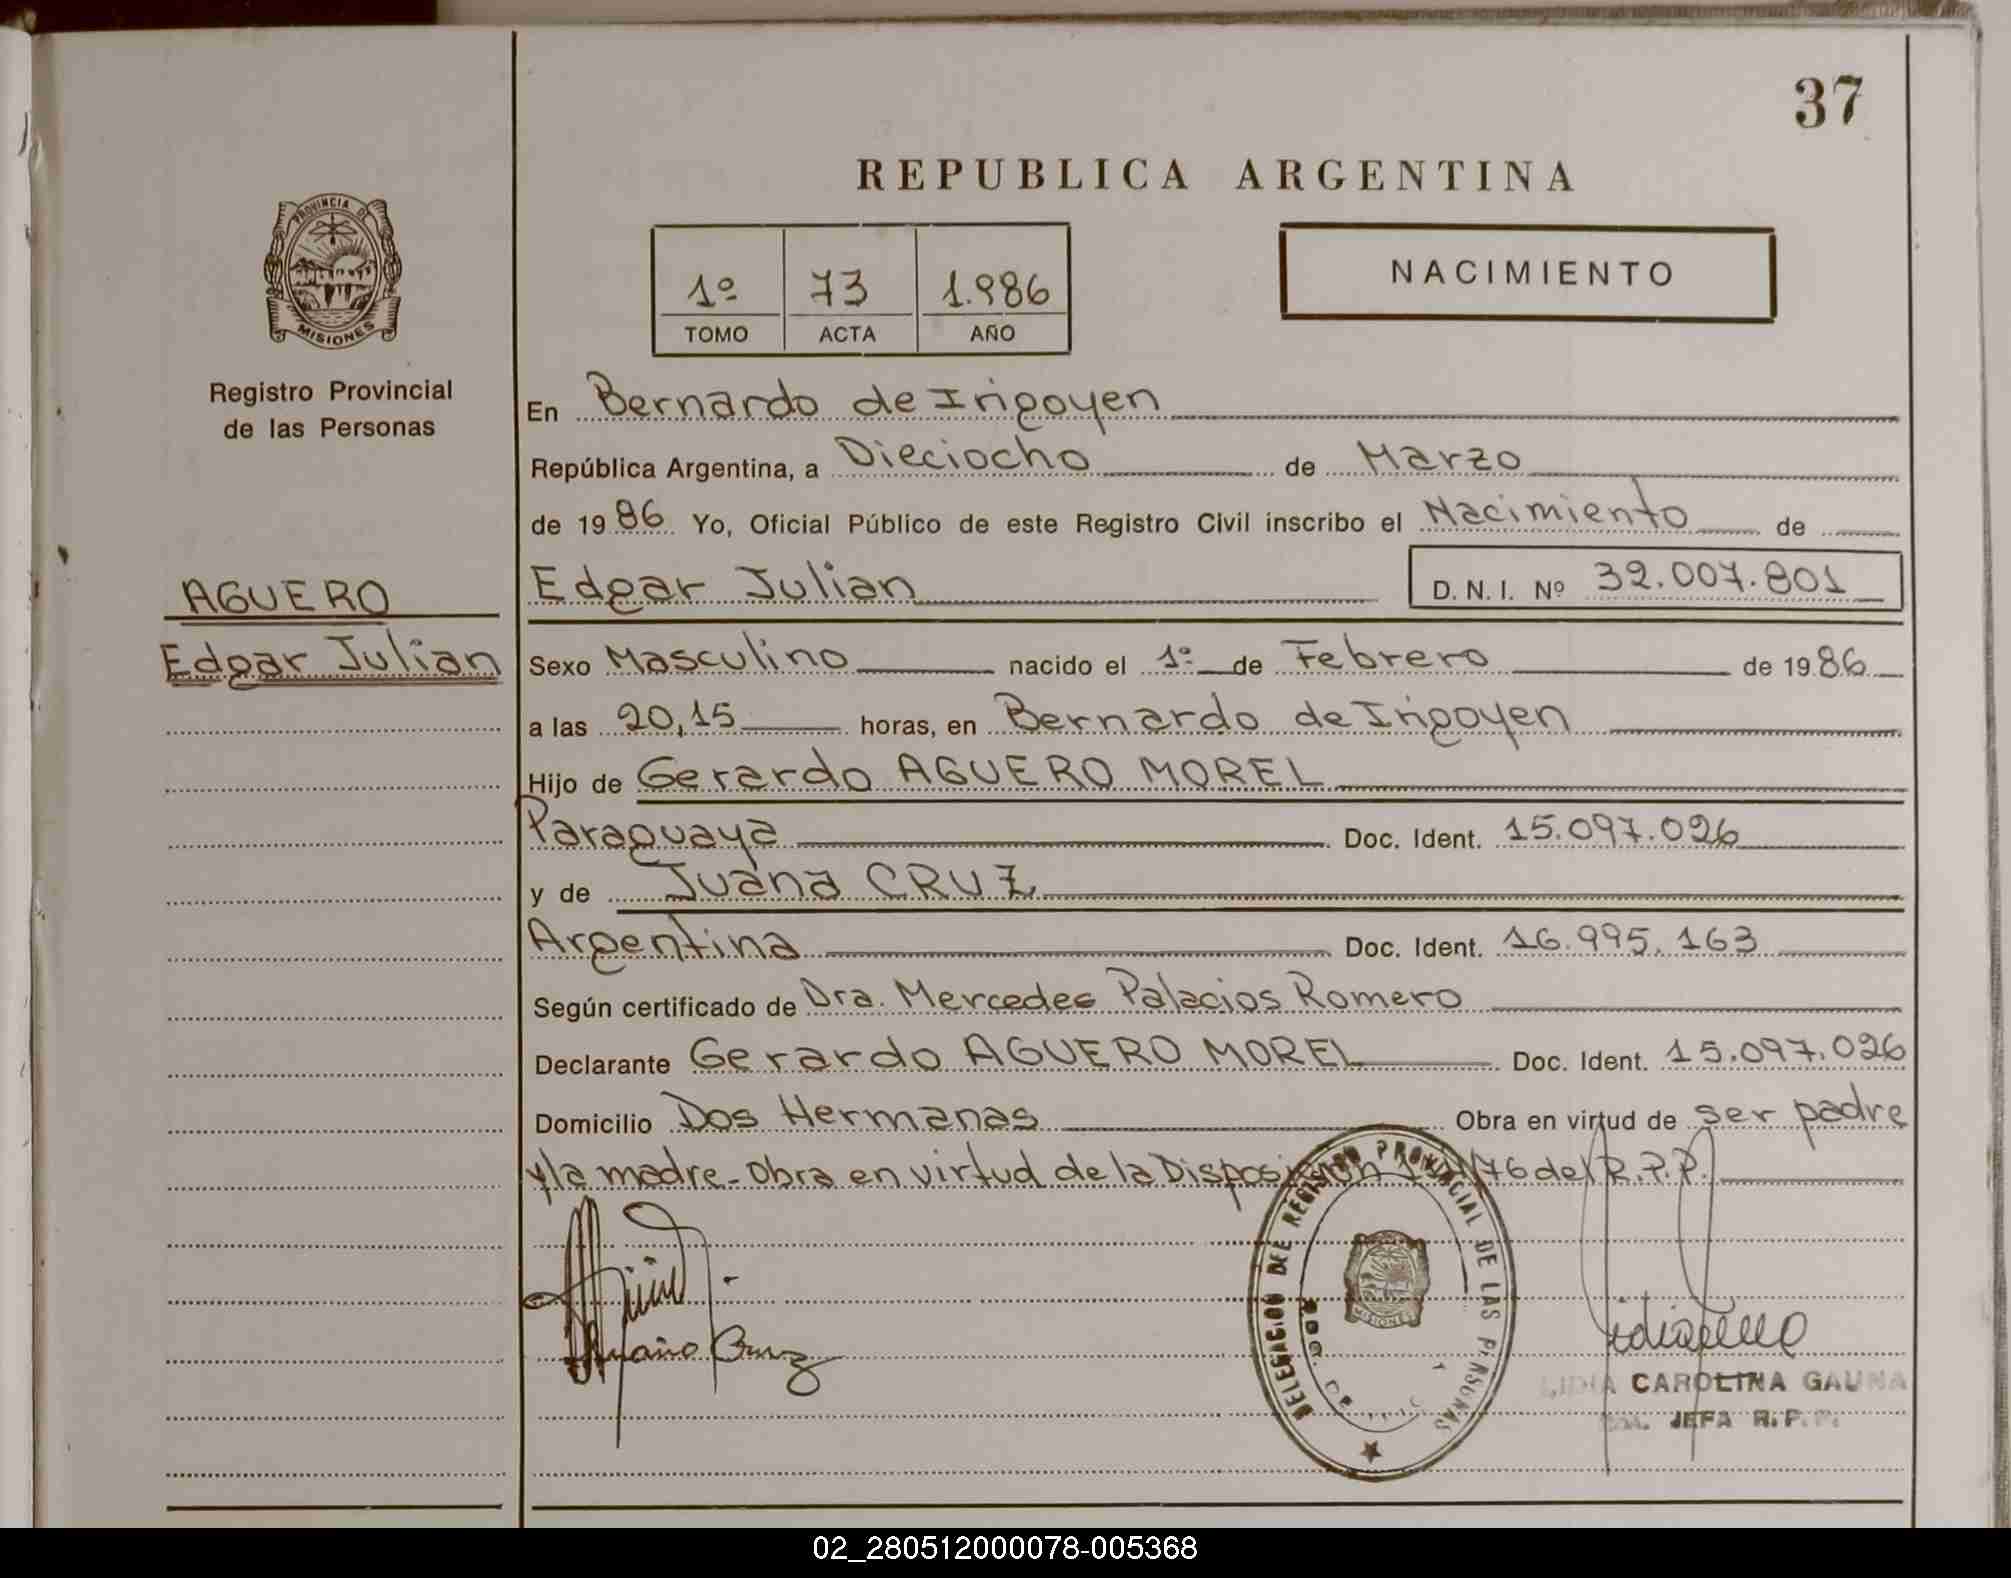 37
REPUBLICA ARGENTINA
PROVINCIA DE
MISIONES
Registro Provincial
de las Personas
1º 73 1.986
TOMO ACTA AÑO
NACIMIENTO
En Bernardo de Irigoyen
República Argentina, a Dieciocho de Marzo
de 1986 Yo, Oficial Público de este Registro Civil inscribo el Nacimiento de
AGUERO
Edgar Julian
Edgar Julian D. N. I. Nº 32.007.801
Sexo Masculino nacido el 1º de Febrero de 1986
a las 20,15 horas, en Bernardo de Irigoyen
Hijo de Gerardo AGUERO MOREL
Paraguaya Doc. Ident. 15.097.026
y de Juana CRUZ
Argentina Doc. Ident. 16.995.163
Según certificado de Dra. Mercedes Palacios Romero
Declarante Gerardo AGUERO MOREL Doc. Ident. 15.097.026
Domicilio Dos Hermanas Obra en virtud de ser padre
y la madre - Obra en virtud de la Disposición /76 del R.P.P.
DELEGACIÓN DE REGISTRO PROVINCIAL DE LAS PERSONAS
MISIONES
Juana Cruz
LIDIA CAROLINA GAUNA
JEFA R.P.P.
02_280512000078-005368